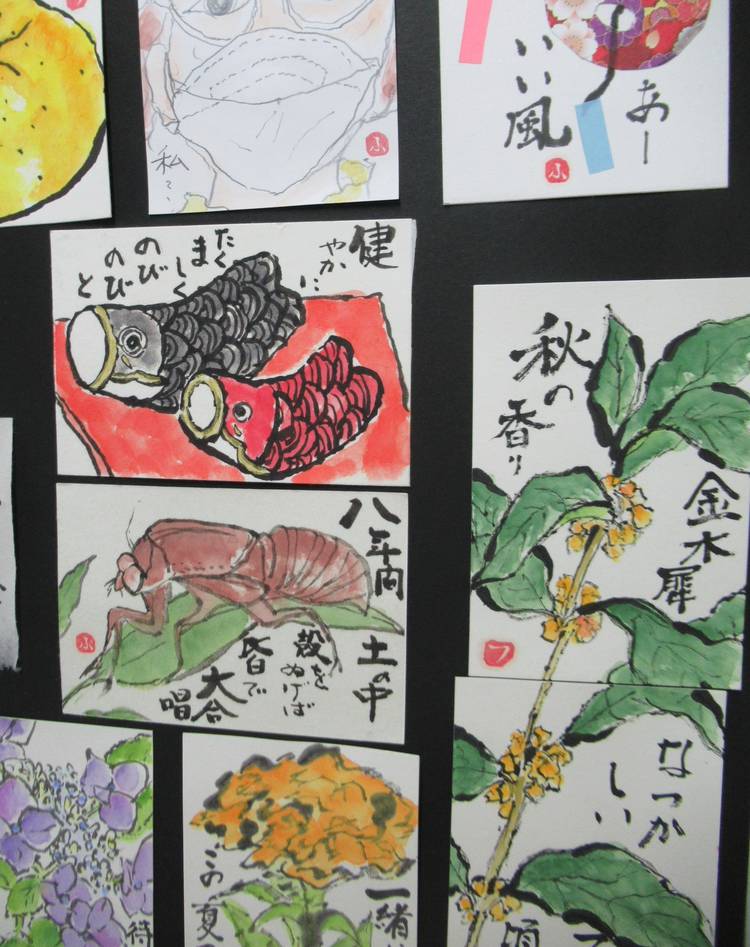 私
ふ
あー
いい風
ふ
健
やかに
たく
ましく
のび
のび
と
八年間
土の中
殻を
ぬげば
皆で
大合
唱
ふ
秋の
香り
金木犀
フ
なつか
しい
頃
待
一緒
この夏